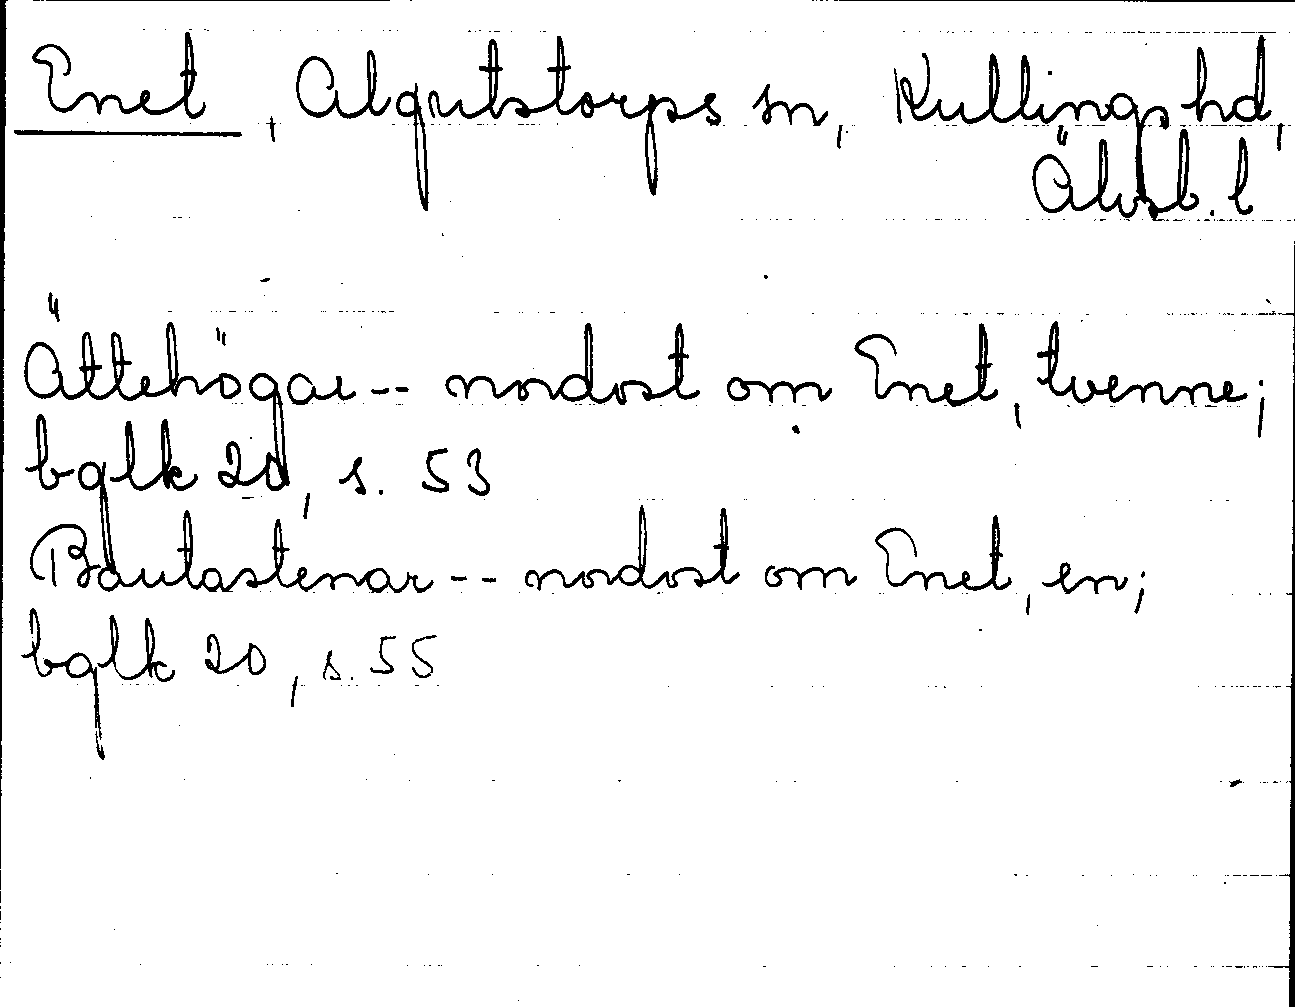 Enet, Algutstorps sn, Kullings hd,
Älvsb. l
Ättehögar -- nordost om Enet, tvenne;
bglk 20, s. 53
Bautastenar -- nordost om Enet, en;
bglk 20, s. 55